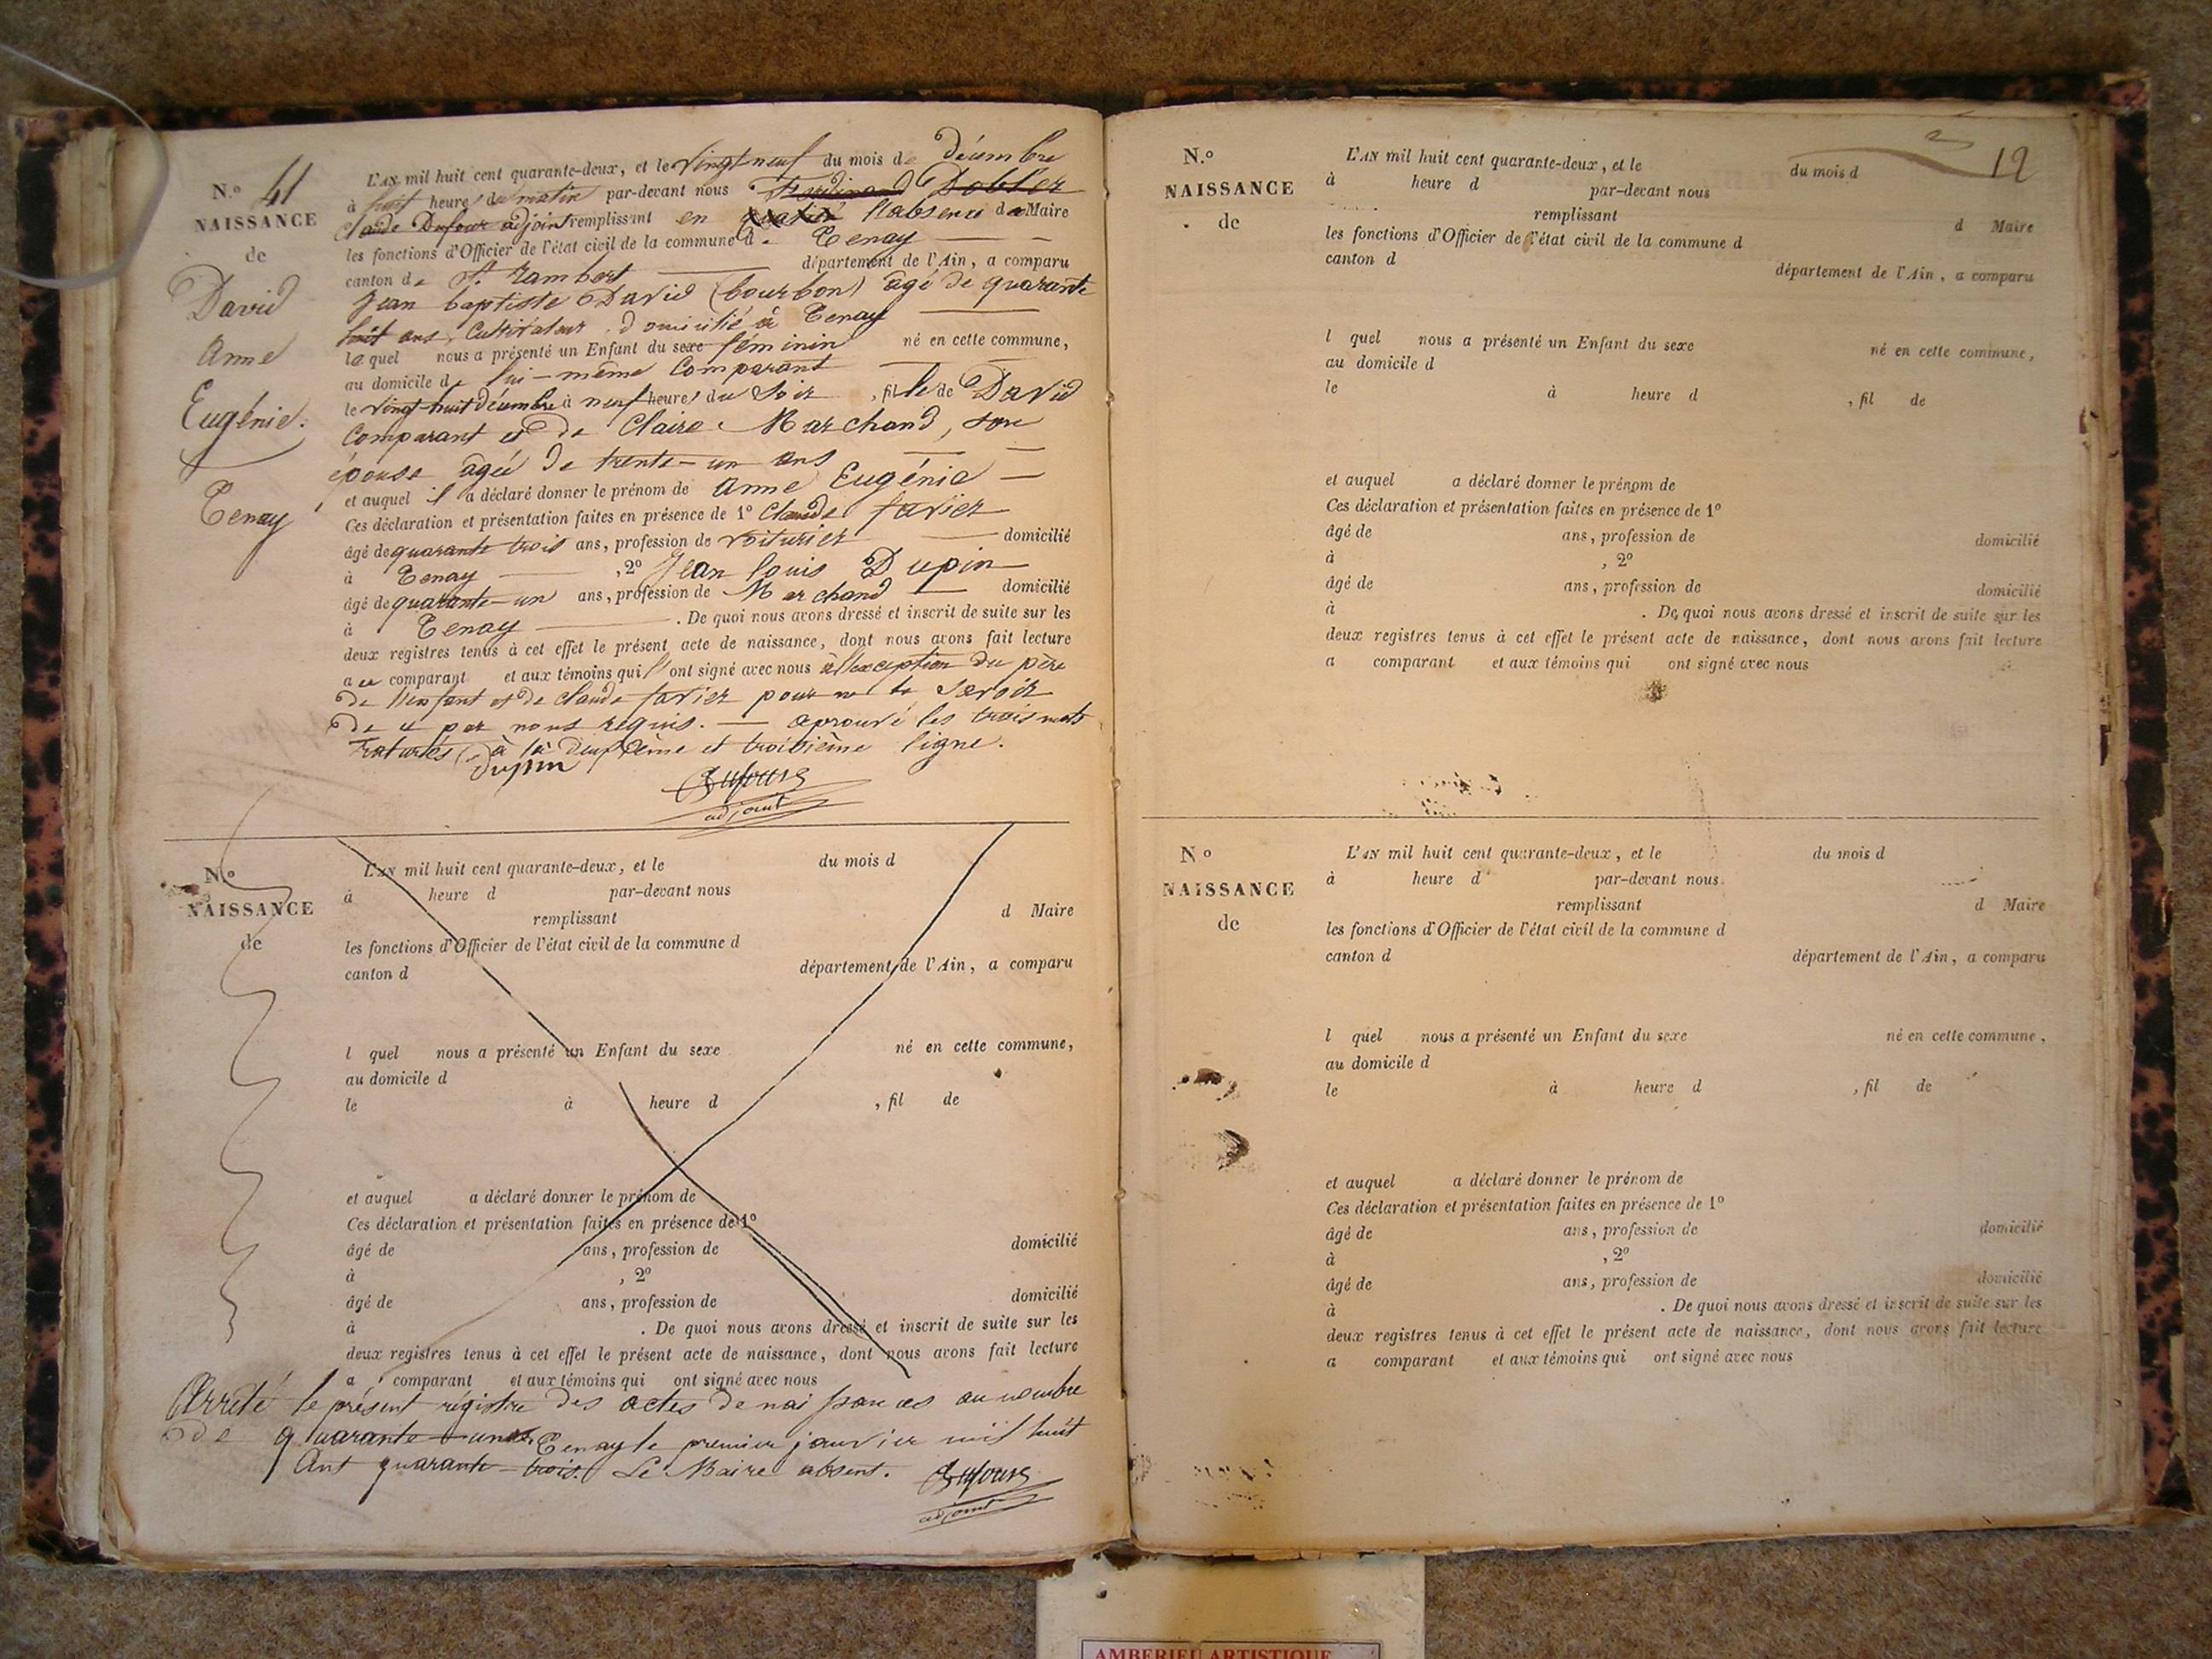 N.º 41
NAISSANCE
de
David
Anne
Eugénie.
Tenay
L'AN mil huit cent quarante-deux, et le vingt neuf du mois de décembre
à huit heures du matin par-devant nous Ferdinand Dobler
Claude Dufour adjoint remplissant en l'absence du Maire
les fonctions d'Officier de l'état civil de la commune de Tenay
canton de St. Rambert département de l'Ain, a comparu
Jean baptiste David (bourbon) âgé de quarante
huit ans, Cultivateur domicilié à Tenay
lequel nous a présenté un Enfant du sexe féminin né en cette commune,
au domicile de lui-même Comparant
le vingt-huit décembre à neuf heures du Soir, fille de David
Comparant et de Claire Marchand, son
épouse âgée de trente-un ans
et auquel il a déclaré donner le prénom de Anne Eugénie
Ces déclaration et présentation faites en présence de 1º Claude favier
âgé de quarante trois ans, profession de voiturier domicilié
à Tenay, 2º Jean louis Dupin
âgé de quarante-un ans, profession de Marchand domicilié
à Tenay. De quoi nous avons dressé et inscrit de suite sur les
deux registres tenus à cet effet le présent acte de naissance, dont nous avons fait lecture
a ce comparant et aux témoins qui l' ont signé avec nous à l'exception du père
de l'enfant et de claude favier pour ne le savoir
de ce par nous requis. — aprouvé les trois mots
raturés à la deuxième et troisième ligne.
Dupin
Dufour
adjoint
N.º
NAISSANCE
de
L'AN mil huit cent quarante-deux, et le du mois d
à heure d par-devant nous
remplissant d Maire
les fonctions d'Officier de l'état civil de la commune d
canton d département de l'Ain, a comparu
l quel nous a présenté un Enfant du sexe né en cette commune,
au domicile d
le à heure d , fil de
et auquel a déclaré donner le prénom de
Ces déclaration et présentation faites en présence de 1º
âgé de ans, profession de domicilié
à , 2º
âgé de ans, profession de domicilié
à . De quoi nous avons dressé et inscrit de suite sur les
deux registres tenus à cet effet le présent acte de naissance, dont nous avons fait lecture
a comparant et aux témoins qui ont signé avec nous
Arrêté le présent régistre des actes de naissances au nombre
de quarante-un. Tenay le premier janvier mil huit
Cent quarante-trois. Le Maire absent. Dufour
adjoint
12
N.º
NAISSANCE
de
L'AN mil huit cent quarante-deux, et le du mois d
à heure d par-devant nous
remplissant d Maire
les fonctions d'Officier de l'état civil de la commune d
canton d département de l'Ain, a comparu
l quel nous a présenté un Enfant du sexe né en cette commune,
au domicile d
le à heure d , fil de
et auquel a déclaré donner le prénom de
Ces déclaration et présentation faites en présence de 1º
âgé de ans, profession de domicilié
à , 2º
âgé de ans, profession de domicilié
à . De quoi nous avons dressé et inscrit de suite sur les
deux registres tenus à cet effet le présent acte de naissance, dont nous avons fait lecture
a comparant et aux témoins qui ont signé avec nous
Nº
NAISSANCE
de
L'AN mil huit cent quarante-deux, et le du mois d
à heure d par-devant nous
remplissant d Maire
les fonctions d'Officier de l'état civil de la commune d
canton d département de l'Ain, a comparu
l quel nous a présenté un Enfant du sexe né en cette commune,
au domicile d
le à heure d , fil de
et auquel a déclaré donner le prénom de
Ces déclaration et présentation faites en présence de 1º
âgé de ans, profession de domicilié
à , 2º
âgé de ans, profession de domicilié
à . De quoi nous avons dressé et inscrit de suite sur les
deux registres tenus à cet effet le présent acte de naissance, dont nous avons fait lecture
a comparant et aux témoins qui ont signé avec nous
AMBERIEU ARTISTIQUE